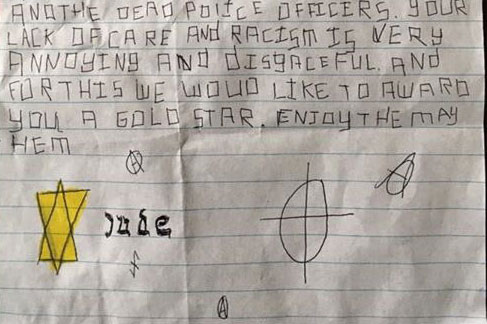 ANOTHE DEAD POLICE OFFICERS. YOUR
LACK OF CARE AND RACISM IS VERY
ANNOYING AND DISGACEFUL. AND
FOR THIS WE WOULD LIKE TO AWARD
YOU A GOLD STAR. ENJOY THE MAY
HEM
Jude